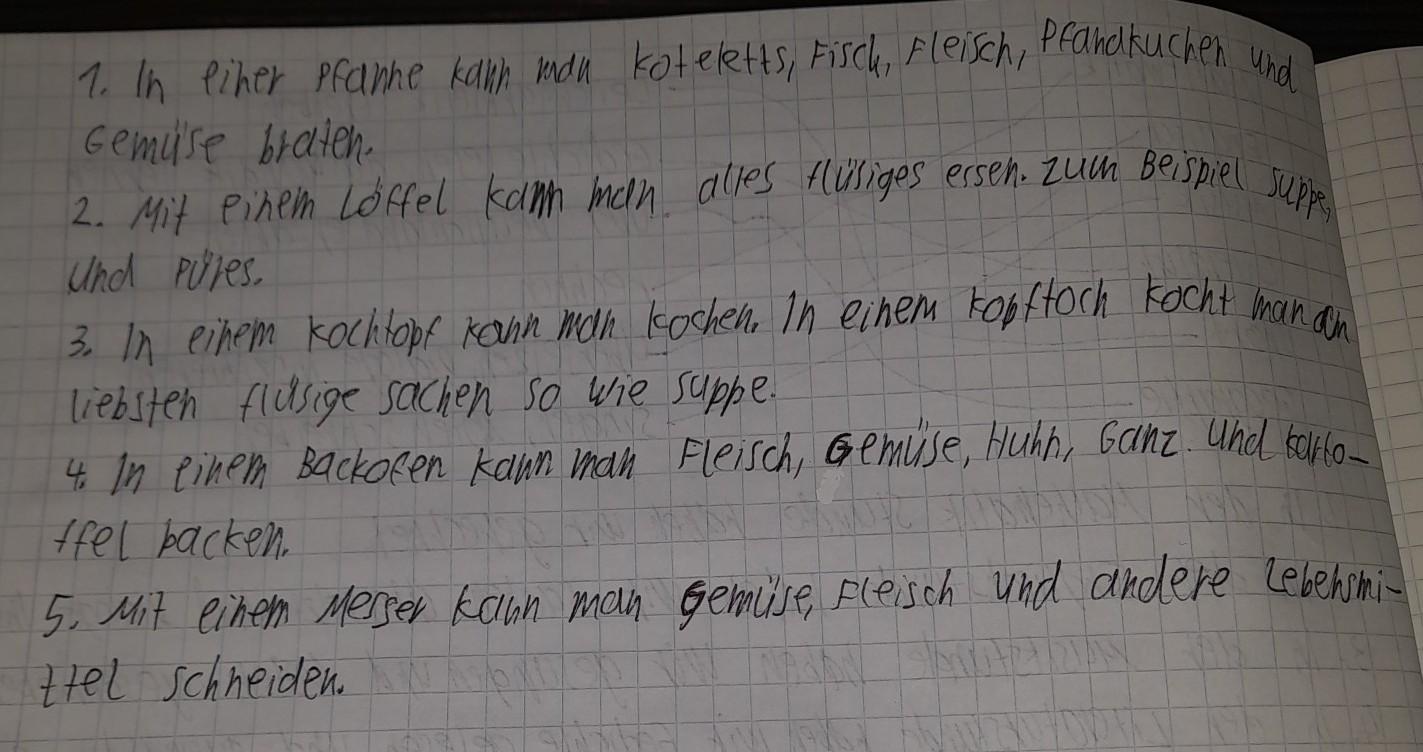 1. In einer Pfanne kann man Koteletts, Fisch, Fleisch, Pfandkuchen und
Gemüse braten.
2. Mit einem Löffel kann man alles flüsiges essen. Zum Beispiel Suppe,
und Püres.
3. In einem Kochtopf kann man kochen. In einem kopftoch kocht man am
liebsten flüsige sachen so wie suppe.
4. In einem Backofen kann man Fleisch, Gemüse, Huhn, Ganz. und karto-
ffel backen.
5. Mit einem Messer kann man Gemüse, Fleisch und andere Lebensmi-
ttel schneiden.